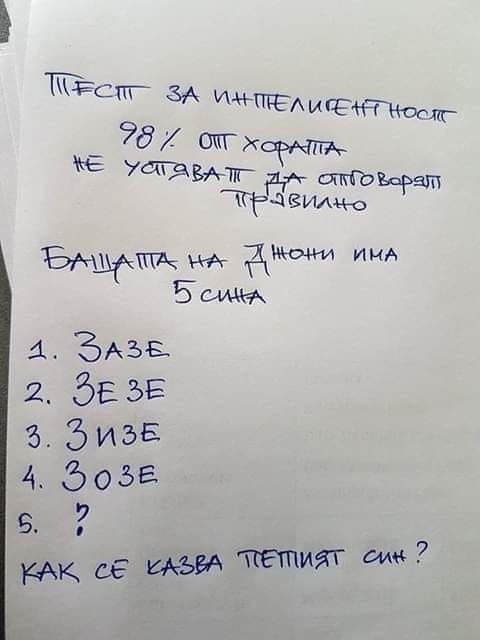 ТЕСТ ЗА ИНТЕЛИГЕНТНОСТ
98% ОТ ХОРАТА
НЕ УСПЯВАТ ДА ОТГОВОРЯТ
ПРАВИЛНО
БАЩАТА НА ДЖОНИ ИМА
5 СИНА
1. ЗАЗЕ
2. ЗЕЗЕ
3. ЗИЗЕ
4. ЗОЗЕ
5. ?
КАК СЕ КАЗВА ПЕТИЯТ СИН?